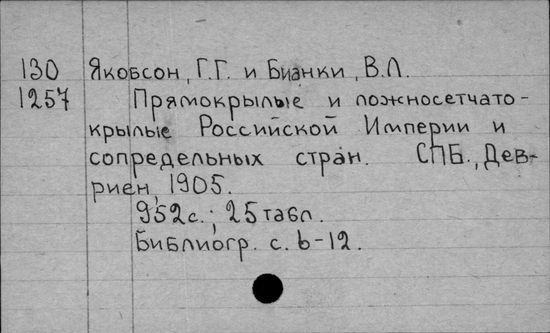 130 Якобсон, Г.Г. и Бианки, В.Л.
1257 Прямокрылые и ложносетчато-
крылые Российской Империи и
сопредельных стран. СПБ., Дев-
риен, 1905.
952с.; 25 табл.
Библиогр. с. 6-12.